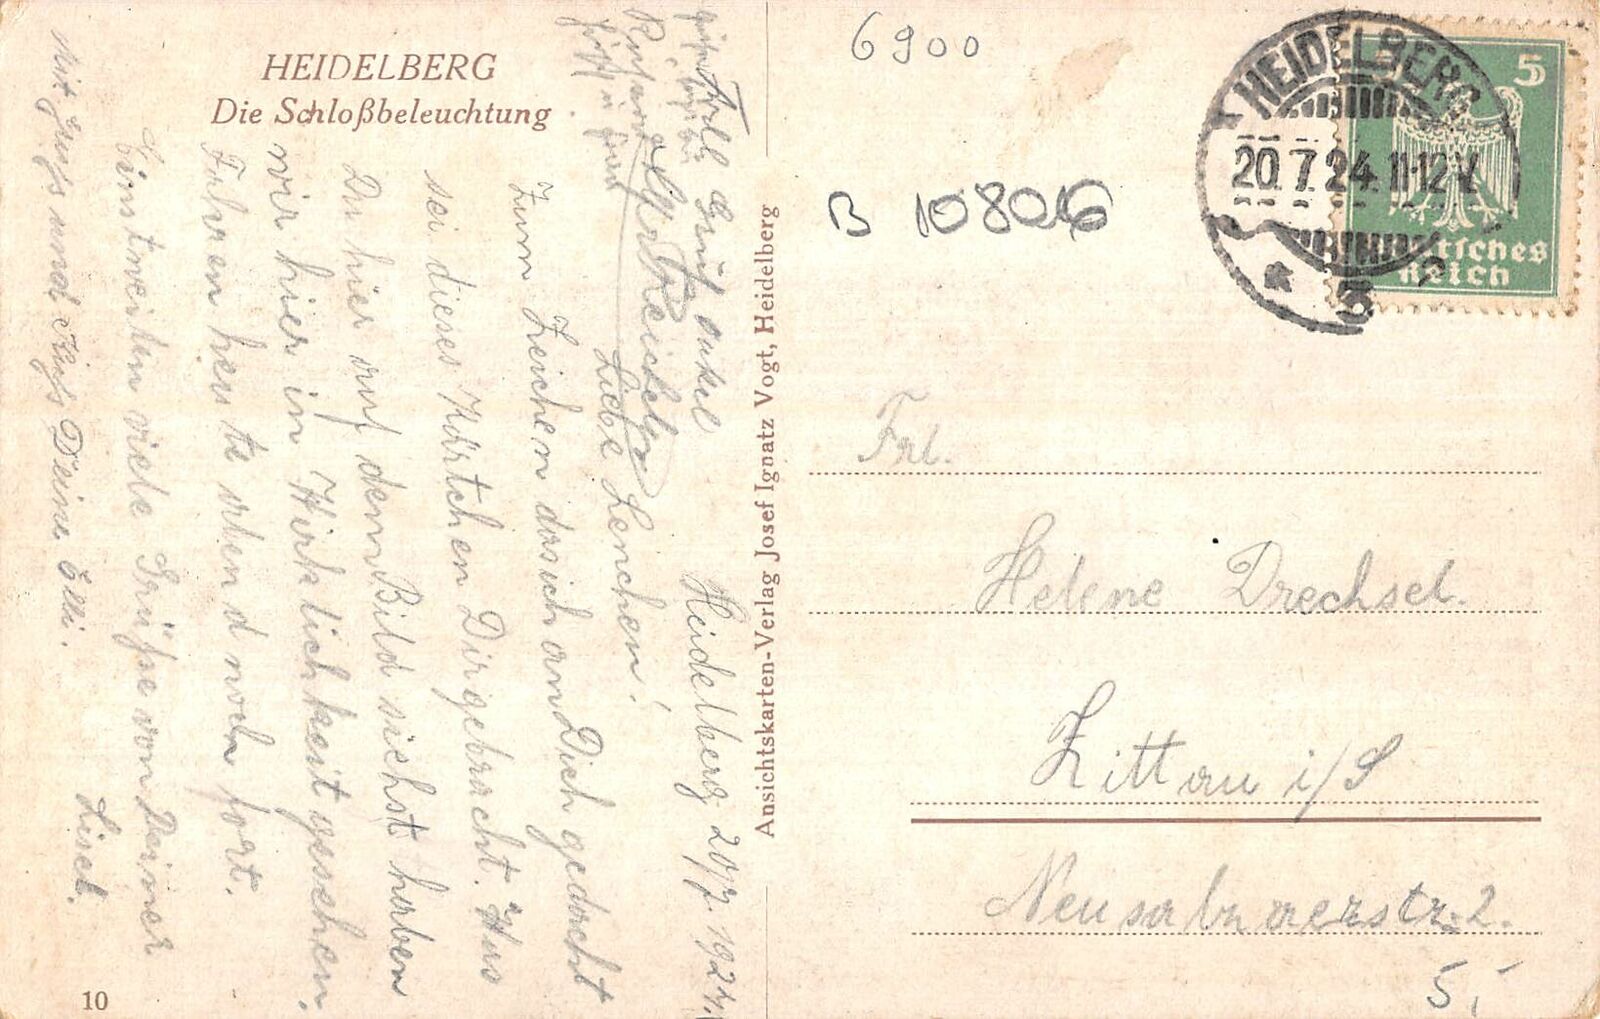 HEIDELBERG
Die Schloßbeleuchtung
Heidelberg 20/7. 1924.
Liebe Lenchen!
Zum Zeichen das ich an Dich gedacht
sei dieses Kärtchen Dir gebracht. Was
Du hier auf dem Bild siehst haben
wir hier in Wirklichkeit gesehen.
Fahren heute abend noch fort.
Einstweilen viele Grüße von Deiner
Liesel.
Mit Gruß und Kuß Deine Elli.
Gruß onkel
10
Ansichtskarten-Verlag Josef Ignatz Vogt, Heidelberg
6900
B 10806
HEIDELBERG
20.7.24.11-12V.
* 5
5
Deutsches
Reich
Frl.
Helene Drechsel.
Zittau i/S
5,